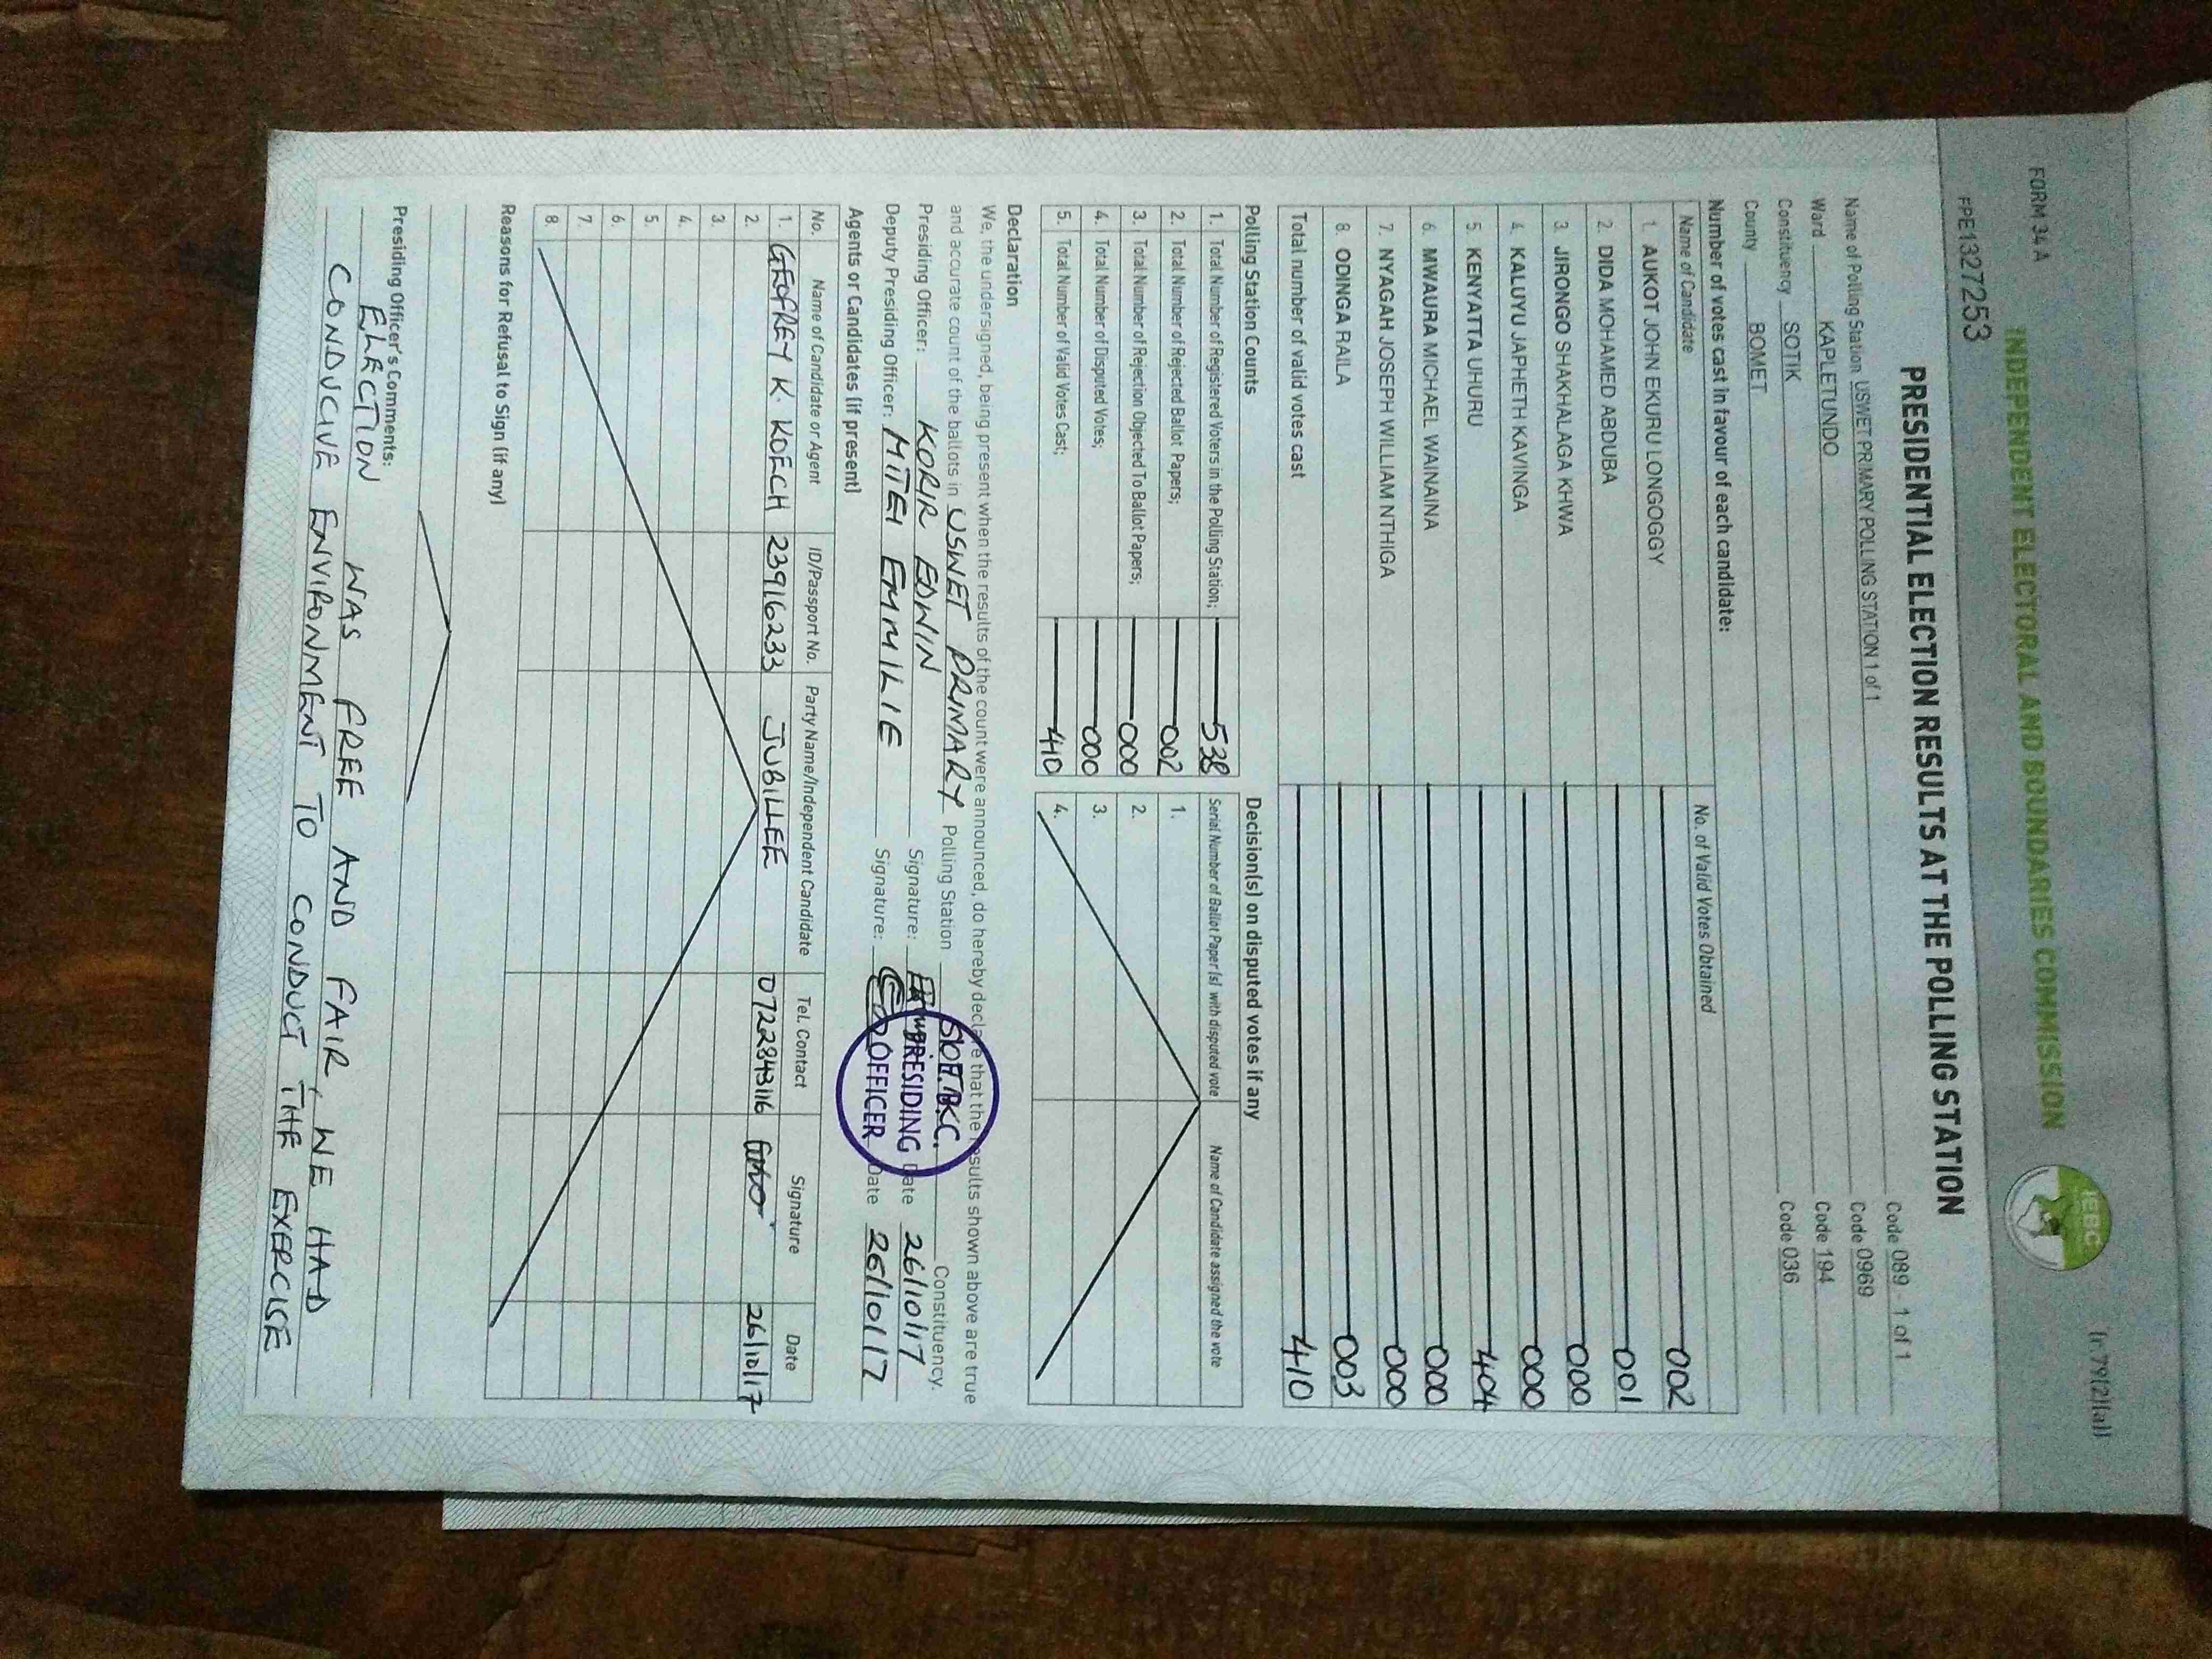 FORM 34 A
(r.79(2)(a))
INDEPENDENT ELECTORAL AND BOUNDARIES COMMISSION
IEBC
FPE1327253
PRESIDENTIAL ELECTION RESULTS AT THE POLLING STATION
Name of Polling Station USWET PRIMARY POLLING STATION 1 of 1 Code 089 - 1 of 1
Ward KAPLETUNDO Code 0969
Constituency SOTIK Code 194
County BOMET Code 036
Number of votes cast in favour of each candidate:
Name of Candidate No. of Valid Votes Obtained
1. AUKOT JOHN EKURU LONGOGGY 002
2. DIDA MOHAMED ABDUBA 001
3. JIRONGO SHAKHALAGA KHWA 000
4. KALUYU JAPHETH KAVINGA 000
5. KENYATTA UHURU 404
6. MWAURA MICHAEL WAINAINA 000
7. NYAGAH JOSEPH WILLIAM NTHIGA 000
8. ODINGA RAILA 003
Total number of valid votes cast 410
Polling Station Counts Decision(s) on disputed votes if any
1. Total Number of Registered Voters in the Polling Station; 538 Serial Number of Ballot Paper (s) with disputed vote Name of Candidate assigned the vote
2. Total Number of Rejected Ballot Papers; 002 1.
3. Total Number of Rejection Objected To Ballot Papers; 000 2.
4. Total Number of Disputed Votes; 000 3.
5. Total Number of Valid Votes Cast; 410 4.
Declaration
We, the undersigned, being present when the results of the count were announced, do hereby declare that the results shown above are true
and accurate count of the ballots in USWET PRIMARY Polling Station Constituency.
Presiding Officer: KORIR EDWIN Signature: Date 26/10/17
Deputy Presiding Officer: MITEI EMMILIE Signature: Date 26/10/17
PRESIDING
OFFICER
Agents or Candidates (if present)
No. Name of Candidate or Agent ID/Passport No. Party Name/Independent Candidate Tel. Contact Signature Date
1. GEOFREY K. KOECH 23916233 JUBILEE 0722843116 26/10/17
2.
3.
4.
5.
6.
7.
8.
Reasons for Refusal to Sign (if any)
Presiding Officer's Comments:
ELECTION WAS FREE AND FAIR, WE HAD
CONDUCIVE ENVIRONMENT TO CONDUCT THE EXERCISE